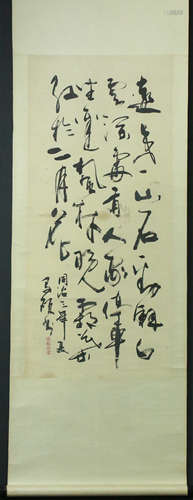 遠上寒山石徑斜白
雲深處有人家停車
坐愛楓林晚霜葉
紅於二月花
同治三年